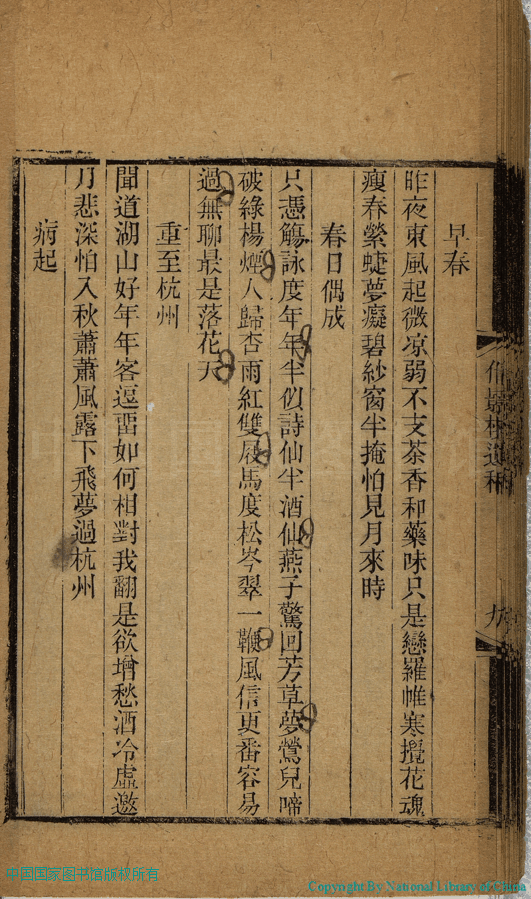 早春
昨夜東風起微凉弱不支茶香和藥味只是戀羅帷寒攪花魂
瘦春縈蜨夢癡碧紗窗半掩怕見月來時
春日偶成
只憑觴詠度年年半似詩仙半酒仙燕子驚回芳草夢鶯兒啼
破綠楊煙人歸杏雨紅雙屐馬度松岑翠一鞭風信更番容易
過無聊最是落花天
重至杭州
聞道湖山好年年客逗畱如何相對我翻是欲增愁酒冷虛邀
月悲深怕入秋蕭蕭風露下飛夢過杭州
病起
遺稿
九
中国国家图书馆版权所有
Copyright By National Library of China